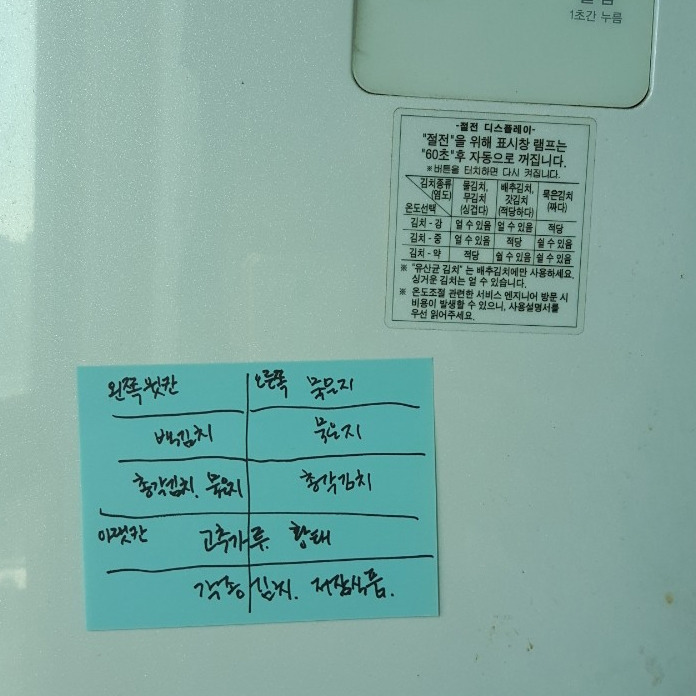 1초간 누름
-절전 디스플레이-
"절전"을 위해 표시창 램프는
"60초"후 자동으로 꺼집니다.
※버튼을 터치하면 다시 켜집니다.
김치종류 (염도) 물김치, 무김치 (싱겁다) 배추김치, 갓김치 (적당하다) 묵은김치 (짜다)
온도선택
김치 - 강 얼 수 있음 얼 수 있음 적당
김치 - 중 얼 수 있음 적당 쉴 수 있음
김치 - 약 적당 쉴 수 있음 쉴 수 있음
※ "유산균 김치" 는 배추김치에만 사용하세요.
싱거운 김치는 얼 수 있습니다.
※ 온도조절 관련한 서비스 엔지니어 방문 시
비용이 발생할 수 있으니, 사용설명서를
우선 읽어주세요.
왼쪽 윗칸 오른쪽 묵은지
백김치 묵은지
총각김치. 묵은지 총각김치
아랫칸 고추가루. 황태
각종 김치. 저장식품.